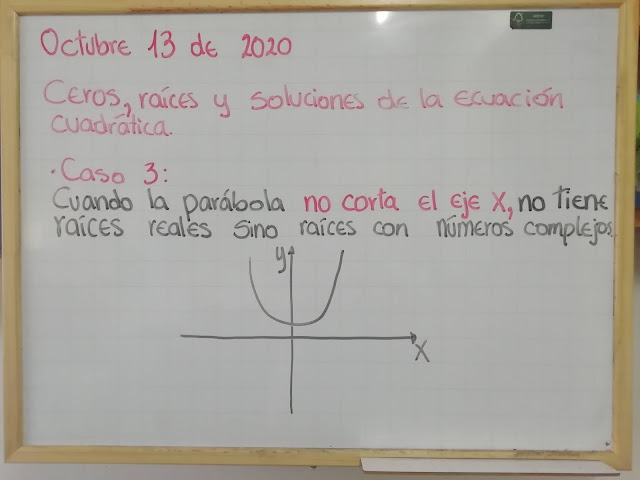 Octubre 13 de 2020
Ceros, raíces y soluciones de la ecuación
cuadrática.
· Caso 3:
Cuando la parábola no corta el eje X, no tiene
raíces reales sino raíces con números complejos.
y
X